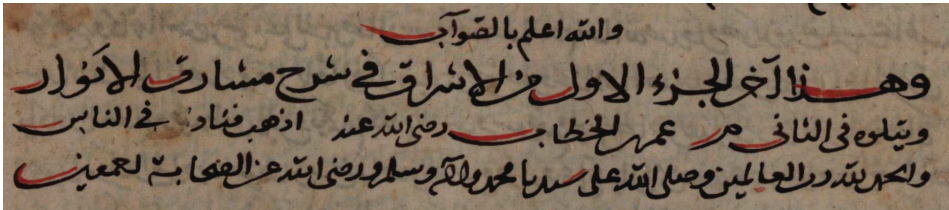 والله اعلم بالصواب
وهذا آخر الجزء الاول من الاشراق في شرح مشارق الانوار
ويتلوه في الثاني م عمر بن الخطاب رضي الله عنه اذهب فناد في الناس
والحمد لله رب العالمين وصلى الله على سيدنا محمد واله وسلم ورضي الله عن الصحابة اجمعين